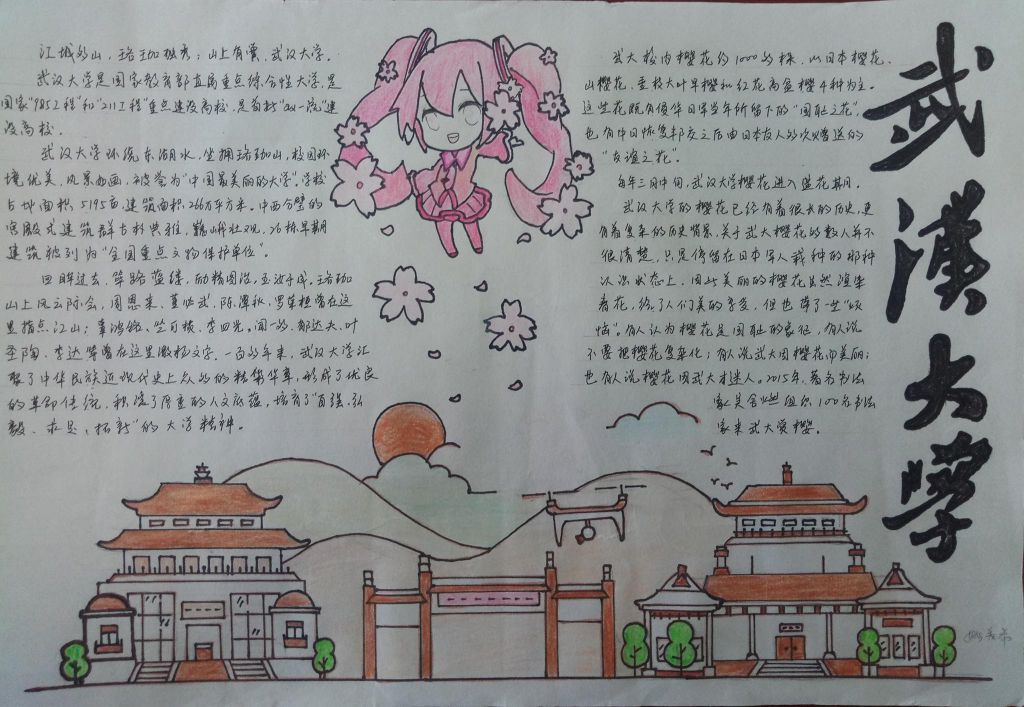 武漢大学
江城多山，珞珈独秀；山上有黉，武汉大学。
武汉大学是国家教育部直属重点综合性大学，是
国家"985工程"和"211工程"重点建设高校，是首批"双一流"建
设高校。
武汉大学环绕东湖水，坐拥珞珈山，校园环
境优美，风景如画，被誉为"中国最美丽的大学"。学校
占地面积5195亩，建筑面积266万平方米。中西合璧的
宫殿式建筑群古朴典雅，巍峨壮观，26栋早期
建筑被列为"全国重点文物保护单位"。
回眸过去，筚路蓝缕，励精图治，玉汝于成，珞珈
山上风云际会，周恩来、董必武、陈潭秋、罗荣桓曾在这
里指点江山；辜鸿铭、竺可桢、李四光、闻一多、郁达夫、叶
圣陶、李达等曾在这里激扬文字。一百多年来，武汉大学汇
聚了中华民族近现代史上众多的精彩华章，形成了优良
的革命传统，积淀了厚重的人文底蕴，培育了"自强、弘
毅、求是、拓新"的大学精神。
武大校内樱花约1000多株，以日本樱花、
山樱花、垂枝大叶早樱和红花高盆樱4种为主。
这些花既有侵华日军当年所留下的"国耻之花"，
也有中日恢复邦交之后由日本友人多次赠送的
"友谊之花"。
每年三月中旬，武汉大学樱花进入盛花期。
武汉大学的樱花已经有着很长的历史，更
有着复杂的历史背景，关于武大樱花的数人并不
很清楚，只是停留在日本军人栽种的那种
认识状态上。因此美丽的樱花虽然渲染
春花，给了人们美的享受，但也降了一些"烦
恼"。有人认为樱花是国耻的象征，有人说
不要把樱花复杂化；有人说武大因樱花而美丽；
也有人说樱花因武大才迷人。2015年，著名书法
家 组织100名书法
家来武大赏樱。